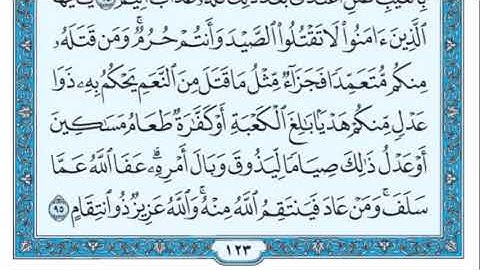 ٱلَّذِينَ ءَامَنُوا۟ لَا تَقْتُلُوا۟ ٱلصَّيْدَ وَأَنتُمْ حُرُمٌ ۚ وَمَن قَتَلَهُۥ
مِنكُم مُّتَعَمِّدًا فَجَزَآءٌ مِّثْلُ مَا قَتَلَ مِنَ ٱلنَّعَمِ يَحْكُمُ بِهِۦ ذَوَا
عَدْلٍ مِّنكُمْ هَدْيًۢا بَٰلِغَ ٱلْكَعْبَةِ أَوْ كَفَّٰرَةٌ طَعَامُ مَسَٰكِينَ
أَوْ عَدْلُ ذَٰلِكَ صِيَامًا لِّيَذُوقَ وَبَالَ أَمْرِهِۦ ۗ عَفَا ٱللَّهُ عَمَّا
سَلَفَ ۚ وَمَنْ عَادَ فَيَنتَقِمُ ٱللَّهُ مِنْهُ ۗ وَٱللَّهُ عَزِيزٌ ذُو ٱنتِقَامٍ ٩٥
١٢٣